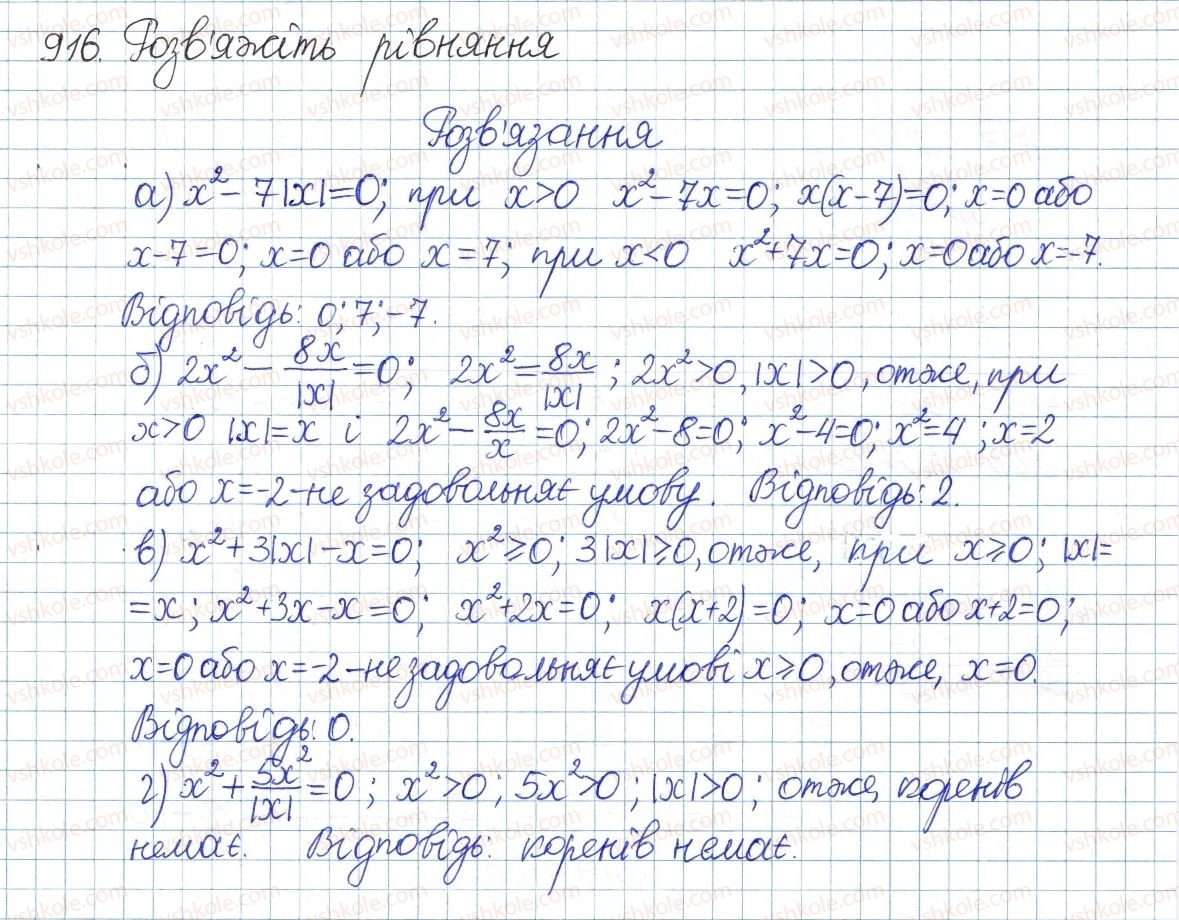 916. Розв'яжіть рівняння
Розв'язання
а) x² - 7|x| = 0; при x > 0 x² - 7x = 0; x(x - 7) = 0; x = 0 або
x - 7 = 0; x = 0 або x = 7; при x < 0 x² + 7x = 0; x = 0 або x = -7.
Відповідь: 0; 7; -7.
б) 2x² - 8x/|x| = 0; 2x² = 8x/|x|; 2x² > 0, |x| > 0, отже, при
x > 0 |x| = x і 2x² - 8x/x = 0; 2x² - 8 = 0; x² - 4 = 0; x² = 4; x = 2
або x = -2 - не задовольняє умову. Відповідь: 2.
в) x² + 3|x| - x = 0; x² ≥ 0; 3|x| ≥ 0, отже, при x ≥ 0; |x| =
= x; x² + 3x - x = 0; x² + 2x = 0; x(x + 2) = 0; x = 0 або x + 2 = 0;
x = 0 або x = -2 - не задовольняє умові x ≥ 0, отже, x = 0.
Відповідь: 0.
г) x² + 5x²/|x| = 0; x² > 0; 5x² > 0; |x| > 0; отже, коренів
немає. Відповідь: коренів немає.
vshkole.com